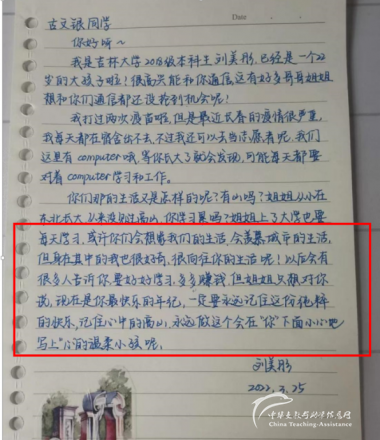 Date
古文银同学
你好呀~
我是吉林大学20级本科王刘美彤,已经是一个22
岁的大孩子啦!很高兴能和你通信还有好多哥哥姐姐
想和你们通信都还没抢到机会呢!
我打过两次疫苗啦,但是最近长春的疫情很严重,
我每天都在宿舍出不去,不过我还可以去当志愿者呢,我们
这里有computer哦,等你长大了就会发现,可能每天都要
对着computer学习和工作。
你们那的生活又是怎样的呢?有山吗?姐姐从小在
东北长大从来没见过高山,你学习累吗?姐姐上了大学也要
每天学习,或许你们会想象我们的生活,会羡慕城市的生活,
但身在其中的我也很好奇,很向往你的生活呢!以后会有
很多人告诉你,要好好学习,多多赚钱,但姐姐只想对你
说,现在是你最快乐的年纪,一定要永远记住这份纯粹
的快乐,记住心中的高山,永远做这个会在“你”下面小心地
写上“心”的温柔小孩呢,
刘美彤
2022.3.25
China Teaching-Assistance